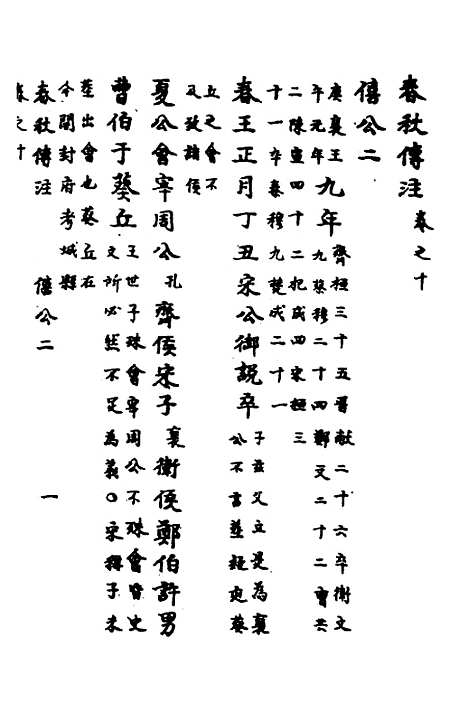 春秋傳注 卷之十
僖公二
庚襄王九年 齊桓三十五晉献二十六卒衛文
午元年 九蔡穆二十四鄭文二十二曹共
二陳宣四十二杞成四宋桓三
十一卒秦穆九楚成二十一
春王正月丁丑宋公御說卒 子玆父立是為襄
公不言葬經史葵
丘之會不
及致諸侯
夏公會宰周公孔齊侯宋子襄衛侯鄭伯許男
曹伯于葵丘 王世子殊會宰周公不殊會皆史
文所必然不足為義○宋稱子未
葬出會也葵丘在
今開封府考城縣
春秋傳注 僖公二 一
卷之十